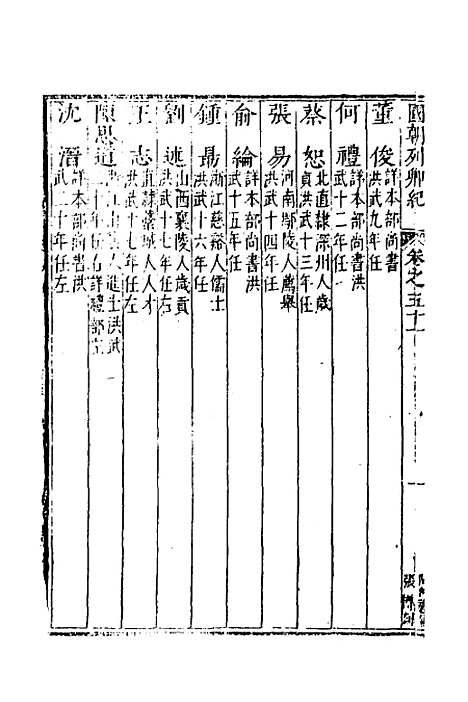 國朝列卿紀 卷之五十一 一
董俊 詳本部尚書
洪武九年任
何禮 詳本部尚書洪
武十二年任
蔡恕 北直隷深州人歲
貢洪武十三年任
張易 河南鄢陵人薦舉
洪武十四年任
俞綸 詳本部尚書洪
武十五年任
鍾昺 浙江慈谿人儒士
洪武十六年任
劉逑 山西襄陵人歲貢
洪武十七年任右
王志 直隷藁城人人才
洪武十七年任左
陳思道 浙江山陰人進士洪武
二十年任右詳禮部左
沈溍 詳本部尚書洪
武二十年任左